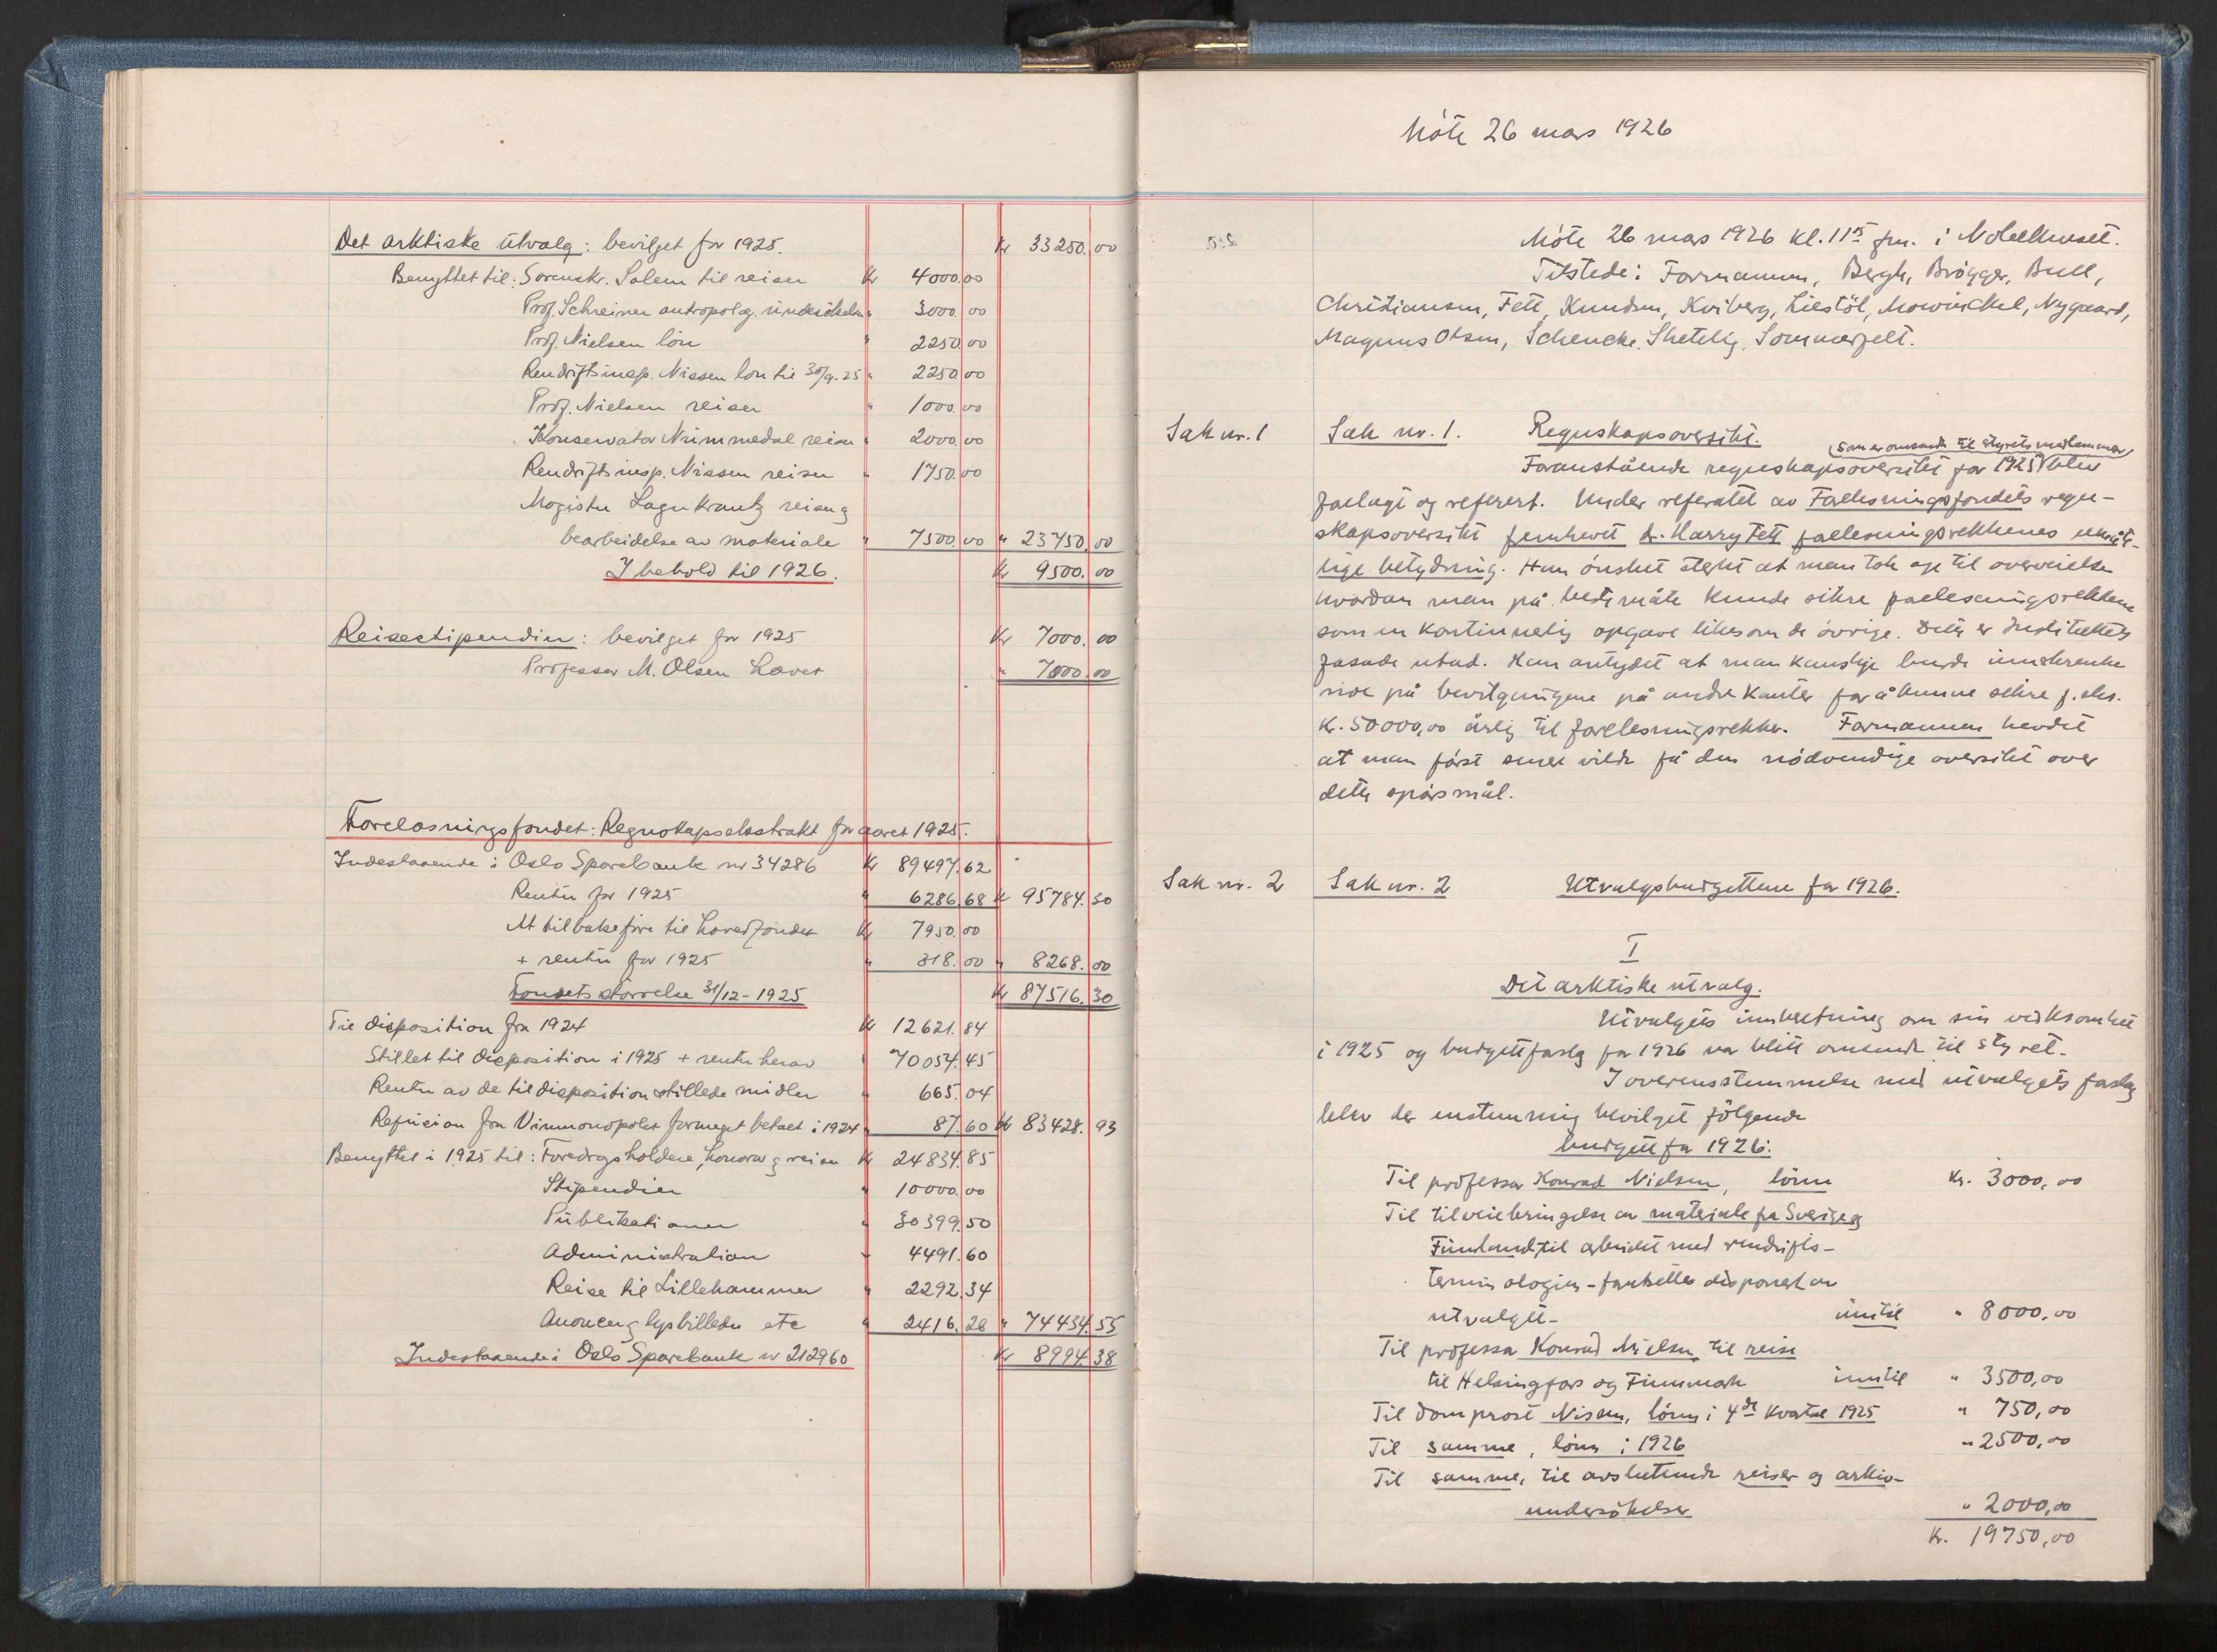 Det arktiske Utvalg: bevilget for 1925. Kr 33250.00
Benyttet til: Sorenskr. Solem til reiser Kr 4000.00
Prof. Schreiner antropolog. undersökelser " 3000.00
Prof. Nielsen lön " 2250.00
Rendriftsinsp. Nissen lön til 30/9.25 " 2250.00
Prof. Nielsen reiser " 1000.00
Konservator Nummedal reiser " 2000.00
Rendriftsinsp. Nissen reiser " 1750.00
Magister Lagerkrantz reiser og
bearbeidelse av materiale " 7500.00 " 23750.00
I behold til 1926. Kr 9500.00
Reisestipendier: bevilget for 1925 Kr 7000.00
Professor M. Olsen hævet " 7000.00
Forelæsningsfondet: Regnskapsekstrakt for aaret 1925.
Indestaaende i Oslo Sparebank nr 34286 Kr 89497.62
Renter for 1925 " 6286.68 Kr 95784.30
At tilbakeföre til Hovedfondet Kr 7950.00
+ renter for 1925 " 318.00 " 8268.00
Fondets störrelse 31/12-1925 Kr 87516.30
Til disposition fra 1924 Kr 12621.84
Stillet til disposition i 1925 + renter herav " 70054.45
Renter av de til disposition stillede midler " 665.04
Refusion fra Vinmonopolet formeget betalt i 1924 " 87.60 Kr 83428.93
Benyttet i 1925 til: Foredragsholdere, honorar og reiser Kr 24834.85
Stipendier " 10000.00
Publikationer " 30399.50
Administration " 4491.60
Reise til Lillehammer " 2292.34
Annoncer, lysbilleder etc " 2416.26 " 74434.55
Indestaaende i Oslo Sparebank nr 212960 Kr 8994.38
Möte 26 mars 1926
Möte 26 mars 1926 kl. 11 15 fm. i Nobelhuset.
Tilstede: Formannen, Bergh, Brögger, Bull,
Christiansen, Fett, Knudsen, Kviberg, Liestöl, Mowinckel, Nygaard,
Magnus Olsen, Schencke, Shetelig, Sommerfelt.
Sak nr. 1 Sak nr. 1. Regnskapsoversikt.
som er omsendt til styrets medlemmer
Foranstående regnskapsoversikt for 1925 blev
forelagt og referert. Under referatet av Forelesningsfondets regn-
skapsoversikt fremhevet hr. Harry Fett forelesningsrekkenes umåte-
lige betydning. Han önsket sterkt at man tok op til overveielse
hvordan man på beste måte kunde sikre forelesningsrekkene
som en kontinuerlig opgave likesom de övrige. Dette er Instituttets
fasade utad. Han antydet at man kanskje burde innskrenke
noe på bevilgningene på andre kanter for å kunne sikre f. eks.
kr. 50000,00 årlig til forelesningsrekker. Formannen hevdet
at man först senere vilde få den nödvendige oversikt over
dette spörsmål.
Sak nr. 2 Sak nr. 2 Utvalgsbudgettene for 1926.
I
Det arktiske utvalg.
Utvalgets innberetning om sin virksomhet
i 1925 og budgettforslag for 1926 var blitt omsendt til styret.
I overensstemmelse med utvalgets forslag
blev der enstemmig bevilget fölgende
budgett for 1926:
Til professor Konrad Nielsen, lönn Kr. 3000,00
Til tilveiebringelse av materiale fra Sverige og
Finnland, til arbeidet med rendrifts-
terminologien - fortsettes disponert av
utvalget - inntil " 8000,00
Til professor Konrad Nielsen, til reise
til Helsingfors og Finnmark inntil " 3500,00
Til domprost Nissen, lönn i 4de kvartal 1925 " 750,00
Til samme, lönn i 1926 " 2500,00
Til samme, til avsluttende reiser og arkiv-
undersökelser " 2000,00
Kr. 19750,00